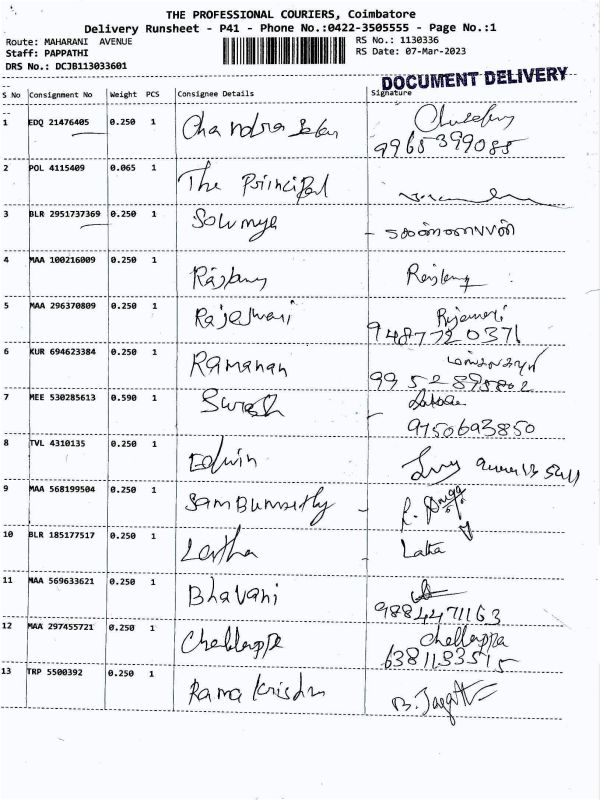 THE PROFESSIONAL COURIERS, Coimbatore
Delivery Runsheet - P41 - Phone No.:0422-3505555 - Page No.:1
Route: MAHARANI AVENUE
RS No.: 1130336
Staff: PAPPATHI
RS Date: 07-Mar-2023
DRS No.: DCJB113033601
DOCUMENT DELIVERY
S No Consignment No Weight PCS Consignee Details Signature
1 EDQ 21476405 0.250 1 Chandra Sekar
9965399085
2 POL 4115409 0.065 1 The Principal
3 BLR 2951737369 0.250 1 Sowmya
4 MAA 100216009 0.250 1
5 MAA 296370809 0.250 1 Rajeswari
9487720371
6 KUR 694623384 0.250 1 Ramanan
9952895802
7 MEE 530285613 0.590 1 Suresh
9750693850
8 TVL 4310135 0.250 1 Edwin
9 MAA 568199504 0.250 1
10 BLR 185177517 0.250 1 Latha
11 MAA 569633621 0.250 1 Bhavani
9884471163
12 MAA 297455721 0.250 1 Chellappa Chellappa
6381183515
13 TRP 5500392 0.250 1 Rama Krishn